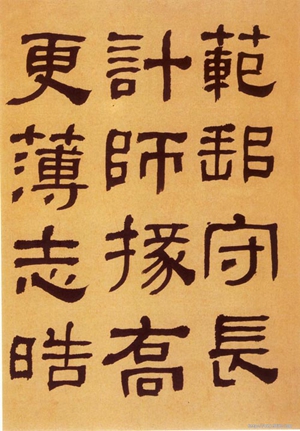 範守長
計師掾
更薄志皓